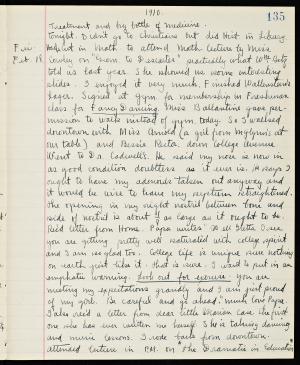 1910.
135
Treatment and big bottle of medicine.
Tonight, I didn't go to Christians but did Hist in Library
Fri. in Math to attend Math lecture by Miss
Feb. 18. Cowley on "from to Descartes" practically what Wm Betz
told us last year. She showed us some interesting
slides. I enjoyed it very much. Finished Wallenstein's
Lager. Signed at Gym for membership in Freshman
class for Fancy Dancing. Miss Ballantine gave per-
mission to walk instead of gym today. So I walked
downtown with Miss Arnold (a girl from at
our table) and Bessie down College Avenue
Went to Dr. Cadwell's. He said my nose is now in
as good condition doubtless as it ever is. He says I
ought to have my adenoids taken out anyway and
it would be wise to have my septum straightened.
The opening in my right nostril between bone and
side of nostril is about as large as it ought to be.
Rec'd letter from Home. Papa writes "So Betta I see
you are getting pretty well saturated with college spirit
and I am so glad too. College life is unique sure nothing
on earth just like it that is sure. I want to put in an
emphatic warning. Look out for excess you are
meeting my expectations grandly and I am just proud
of my girl. Be careful and go ahead." much love Papa.
I also rec'd a letter from dear little Marion Case the first
one she has ever written me herself. She is taking dancing
and music lessons. I rode back from downtown.
attended lecture in P.M. on "The Dramatic in Education